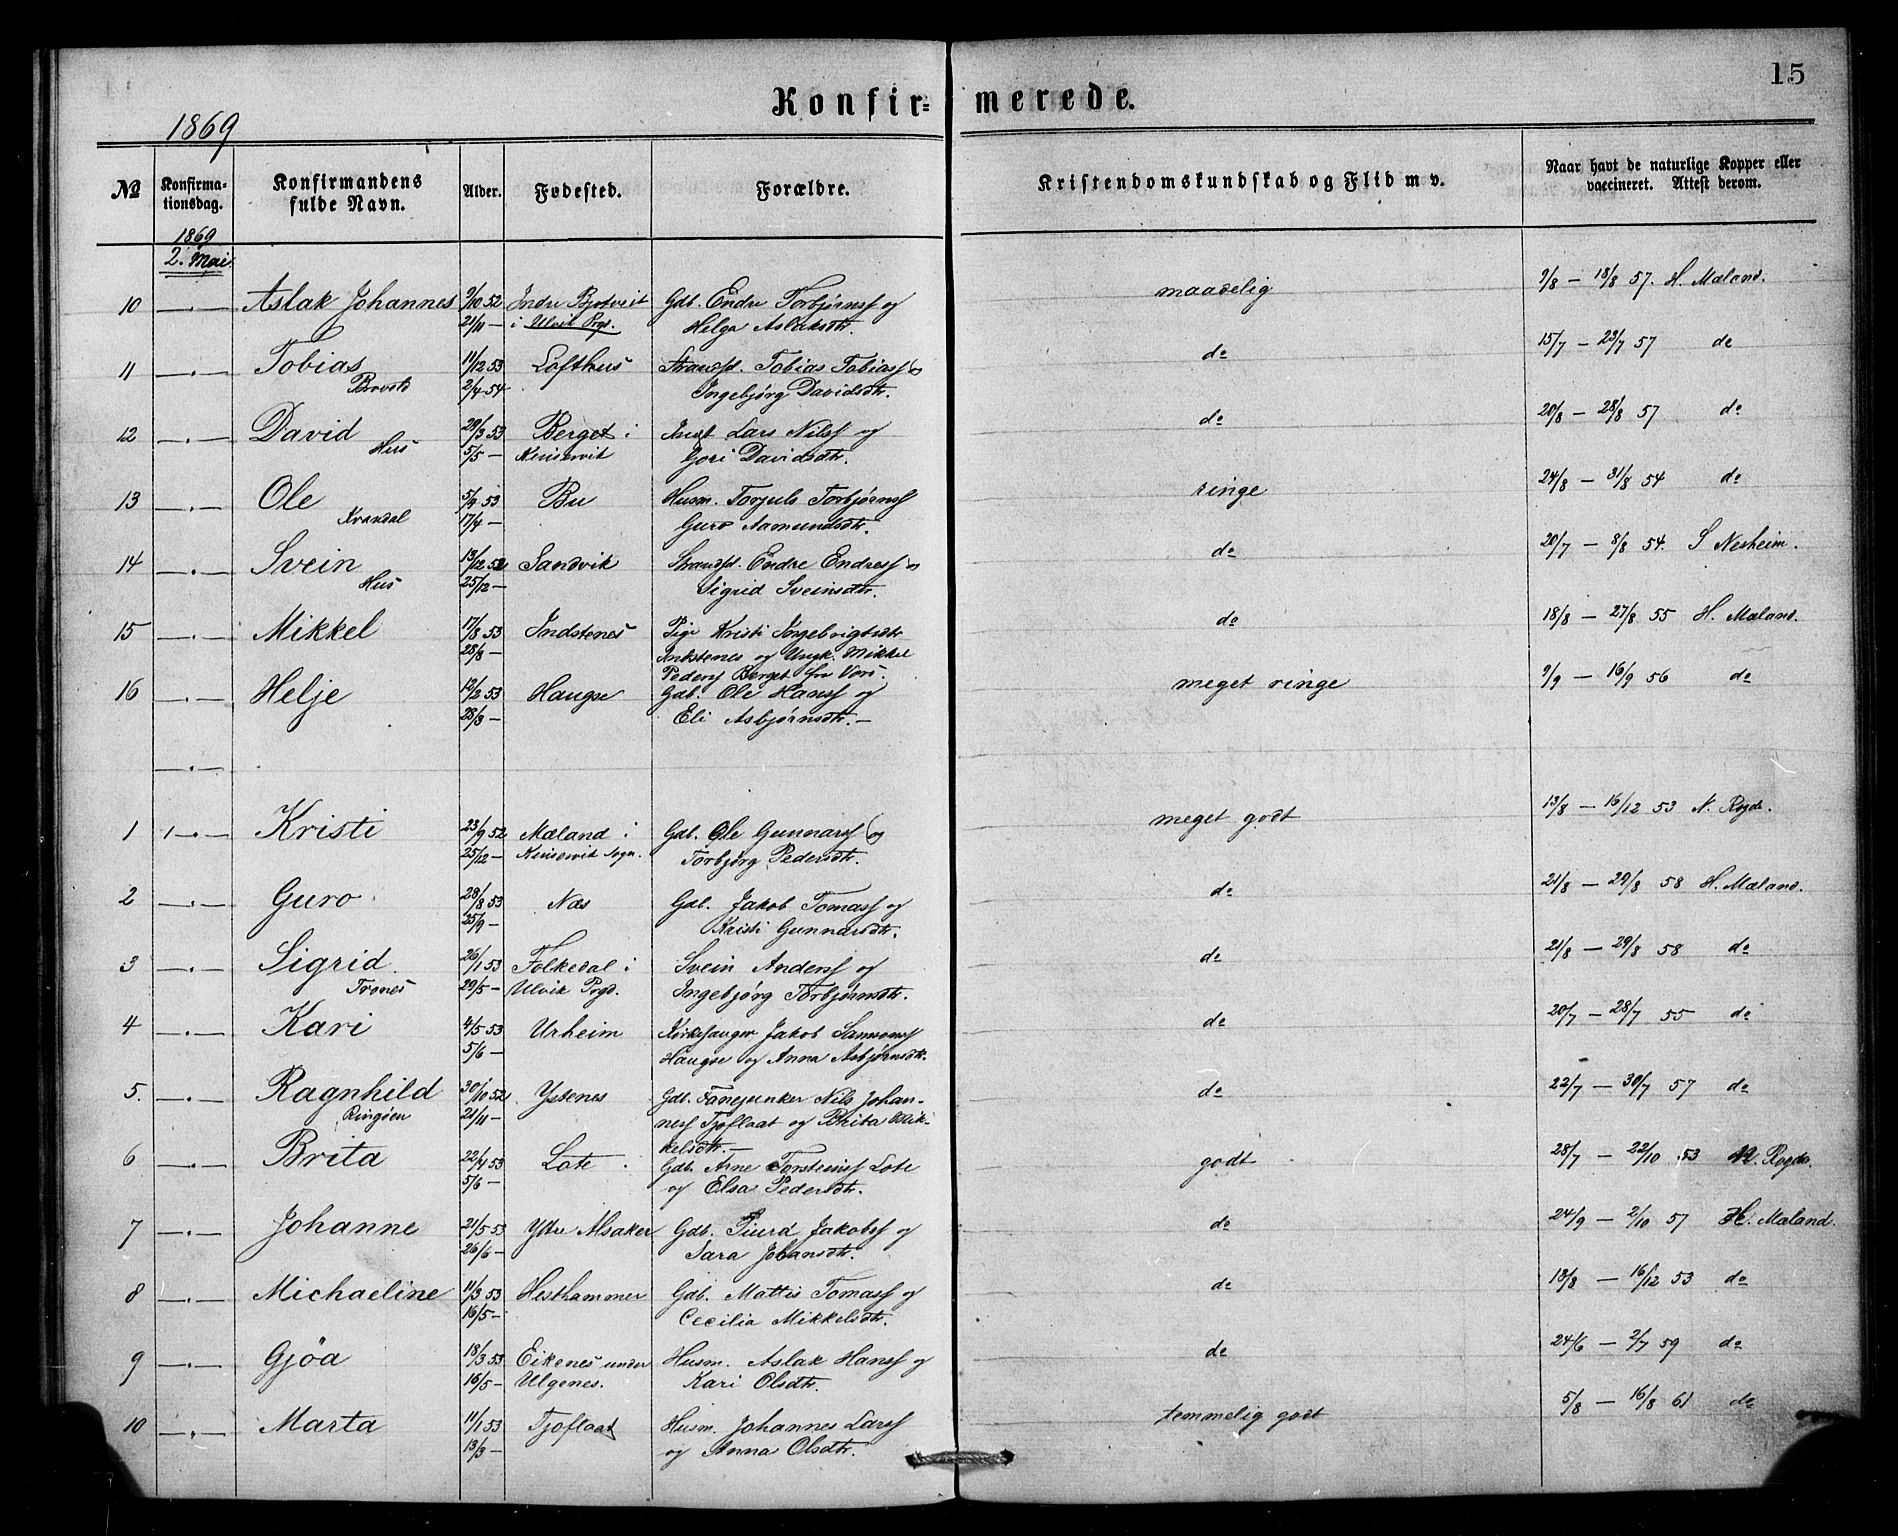 15
Konfir- merede.
1869
No Konfirmationsdag. Konfirmandens fulde Navn. Alder. Fødested. Forældre. Kristendomskundskab og Flid m v. Naar havt de naturlige Kopper eller vaccineret. Attest derom.
1869
2. Mai.
10 —"— Aslak Johannes 9/10 52 Indre Bjotveit Gdb. Endre Torbjørnsf og maadelig 9/8 — 18/8 57. H. Mæland.
21/11 — i Ulvik Prgd. Helga Aslaksdtr.
11 —"— Tobias 11/12 53 Lofthus Strandsd. Tobias Tobiasf og do 15/7 — 23/7 57 do
2/4 54 Ingebjørg Davidsdtr.
12 —"— David 29/3 53 Berget i Lars Nilsf og do 20/8 — 28/8 57 do
Hus 5/5 — Kinservik Gori Davidsdtr.
13 —"— Ole 5/9 53 Bu Husm. Torjuls Torbjørnsf ringe 24/8 — 31/8 54 do
Kvandal 17/4 — Guro Aamundsdtr.
14 —"— Svein 13/12 52 Sandvik Strandsd. Endre Endresf og do 20/7 — 8/8 54. S Nesheim.
Hus 25/12 — Sigrid Sveinsdtr.
15 —"— Mikkel 17/8 53 Indstenes Pige Kristi Ingebrigtsdtr do 18/8 — 27/8 55 H. Mæland.
28/8 — Indstenes og Ungk. Mikkel
Pedersf Berget fra Vors.
16 —"— Helje 12/2 53 Haugse Gdb. Ole Hansf og meget ringe 9/9 — 16/9 56 do
28/3 — Eli Asbjørnsdtr. —
—"—
1 —"— Kristi 23/9 52 Mæland i Gdb. Ole Gunnarsf og meget godt 13/8 — 16/12 53 N. Rogde.
25/12 — Kinservik Sogn. Torbjørg Pedersdtr.
2 —"— Guro 28/8 53 Næs Gdb. Jakob Tomasf og do 21/8 — 29/8 58 H. Mæland.
25/9 — Kristi Gunnarsdtr.
3 —"— Sigrid 26/1 53 Folkedal i Svein Andersf og do 21/8 — 29/8 58 do
Trones 29/5 — Ulvik Prgd. Ingebjørg Torbjørnsdtr.
4 —"— Kari 4/5 53 Urheim Kirkesanger Jakob Samsonsf do 20/7 — 28/7 55 do
5/6 — Haugse og Anna Asbjørnsdtr.
5. —"— Ragnhild 30/10 52 Ystenes Gdb. Fanejunker Nils Johan- do 22/7 — 30/7 57 do
Ringøen 21/11 — nesf Tjoflaat og Brita Mik-
kelsdtr. —
6 —"— Brita 22/4 53 Lote Gdb. Arne Torsteinsf Lote godt 28/7 — 22/10 53 N. Rogde.
5/6 — og Elsa Pedersdtr.
7 —"— Johanne 21/5 53 Ytre Alsaker Gdb. Siurd Jakobsf og do 24/9 — 2/10 57 H. Mæland.
26/6 — Sara Johansdtr.
8 —"— Michaeline 11/3 53 Hesthammer Gdb. Mattis Tomasf og do 13/8 — 16/12 53 do
16/5 — Cecilia Mikkelsdtr.
9 —"— Gjøa 18/3 53 Eikenes under Husm. Aslak Hansf og do 24/6 — 2/7 59 do
16/5 — Ulgenes. Kari Olsdtr.
10 —"— Marta 11/1 53 Tjoflaat Husm. Johannes Larsf temmelig godt 5/8 — 16/8 61 do
13/3 — og Anna Olsdtr.